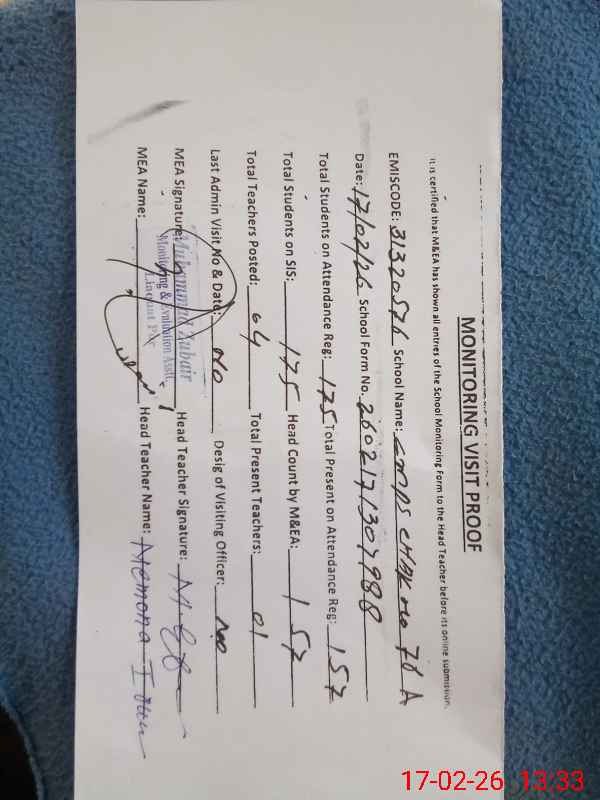 MONITORING VISIT PROOF
It is certified that M&EA has shown all entries of the School Monitoring Form to the Head Teacher before its online submission.
EMISCODE: 31320576 School Name: GMPS CHAK No 78 A
Date: 17/02/26 School Form No. 2602171307988
Total Students on Attendance Reg: 175 Total Present on Attendance Reg: 157
Total Students on SIS: 175 Head Count by M&EA: 157
Total Teachers Posted: 04 Total Present Teachers: 01
Last Admin Visit No & Date: No Desig of Visiting Officer: No
MEA Signature: Head Teacher Signature:
Muhammad Zubair
Monitoring & Evaluation Asstt
MEA Name: Head Teacher Name: Memona
17-02-26 13:33